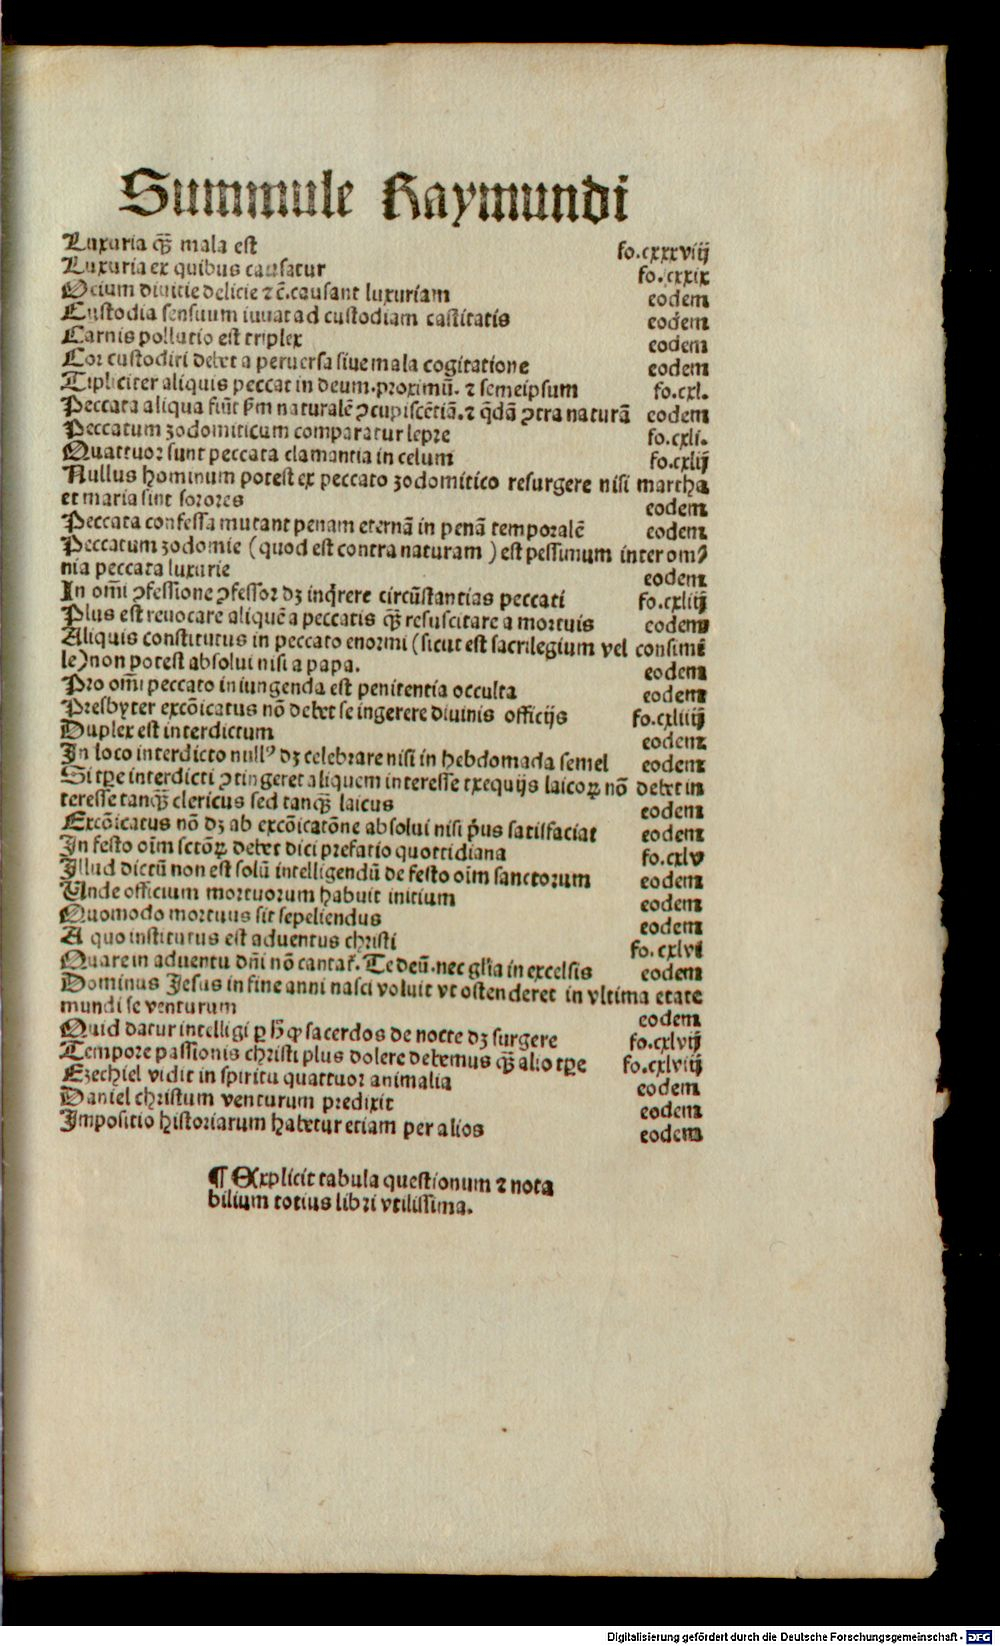 Summule Raymundi
Luxuria qͣꝫ mala est fo.cxxxviij
Luxuria ex quibus causatur fo.cxxix
Ocium diuitie delicie ⁊ c̄.causant luxuriam eodem
Custodia sensuum iuuat ad custodiam castitatis eodem
Carnis pollutio est triplex eodem
Cor custodiri debet a peruersa siue mala cogitatione eodem
Tipliciter aliquis peccat in deum.proximū. ⁊ semeipsum fo.cxl.
Peccata aliqua fiūt ẜm naturalē ꝯcupiscētiā.⁊ q̄dā ꝯtra naturā eodem
Peccatum zodomiticum comparatur lepre fo.cxli.
Quattuor sunt peccata clamantia in celum fo.cxlij
Nullus hominum potest ex peccato zodomitico resurgere nisi martha
et maria sint sorores eodem
Peccata confessa mutant penam eternā in penā temporalē eodem
Peccatum zodomie (quod est contra naturam ) est pessimum inter om⸗
nia peccata luxurie eodem
In om̄i ꝯfessione ꝯfessor dꝫ inq̇rere circūstantias peccati fo.cxliij
Plus est reuocare aliquē a peccatis qͣꝫ resuscitare a mortuis eodem
Aliquis constitutus in peccato enormi (sicut est sacrilegium vel consimi
le)non potest absolui nisi a papa. eodem
Pro om̄i peccato iniungenda est penitentia occulta eodem
Presbyter excōicatus nō debet se ingerere diuinis officijs fo.cxliiij
Duplex est interdictum eodem
In loco interdicto nullꝰ dꝫ celebrare nisi in hebdomada semel eodem
Si tꝑe interdicti ꝯtingeret aliquem interesse exequijs laicoꝝ nō debet in
teresse tanqͣꝫ clericus sed tanqͣꝫ laicus eodem
Excōicatus nō dꝫ ab excōicatōne absolui nisi p̓us satisfaciat eodem
In festo oīm sctōꝝ debet dici prefatio quottidiana fo.cxlv
Illud dictū non est solū intelligendū de festo oīm sanctorum eodem
Unde officium mortuorum habuit initium eodem
Quomodo mortuus sit sepeliendus eodem
A quo institutus est aduentus christi fo. cxlvi
Quare in aduentu dn̄i nō cantat̄. Te deū.nec gl̓ia in excelsis eodem
Dominus Jesus in fine anni nasci voluit vt ostenderet in vltima etate
mundi se venturum eodem
Quid datur intelligi ꝑ h̄ ꝙ sacerdos de nocte dꝫ surgere fo.cxlvij
Tempore passionis christi plus dolere debemus qͣꝫ alio tꝑe fo.cxlviij
Ezechiel vidit in spiritu quattuor animalia eodem
Daniel christum venturum predixit eodem
Impositio historiarum habetur etiam per alios eodem
¶ Explicit tabula questionum ⁊ nota
bilium totius libri vtilissima.
Digitalisierung gefördert durch die Deutsche Forschungsgemeinschaft - DFG